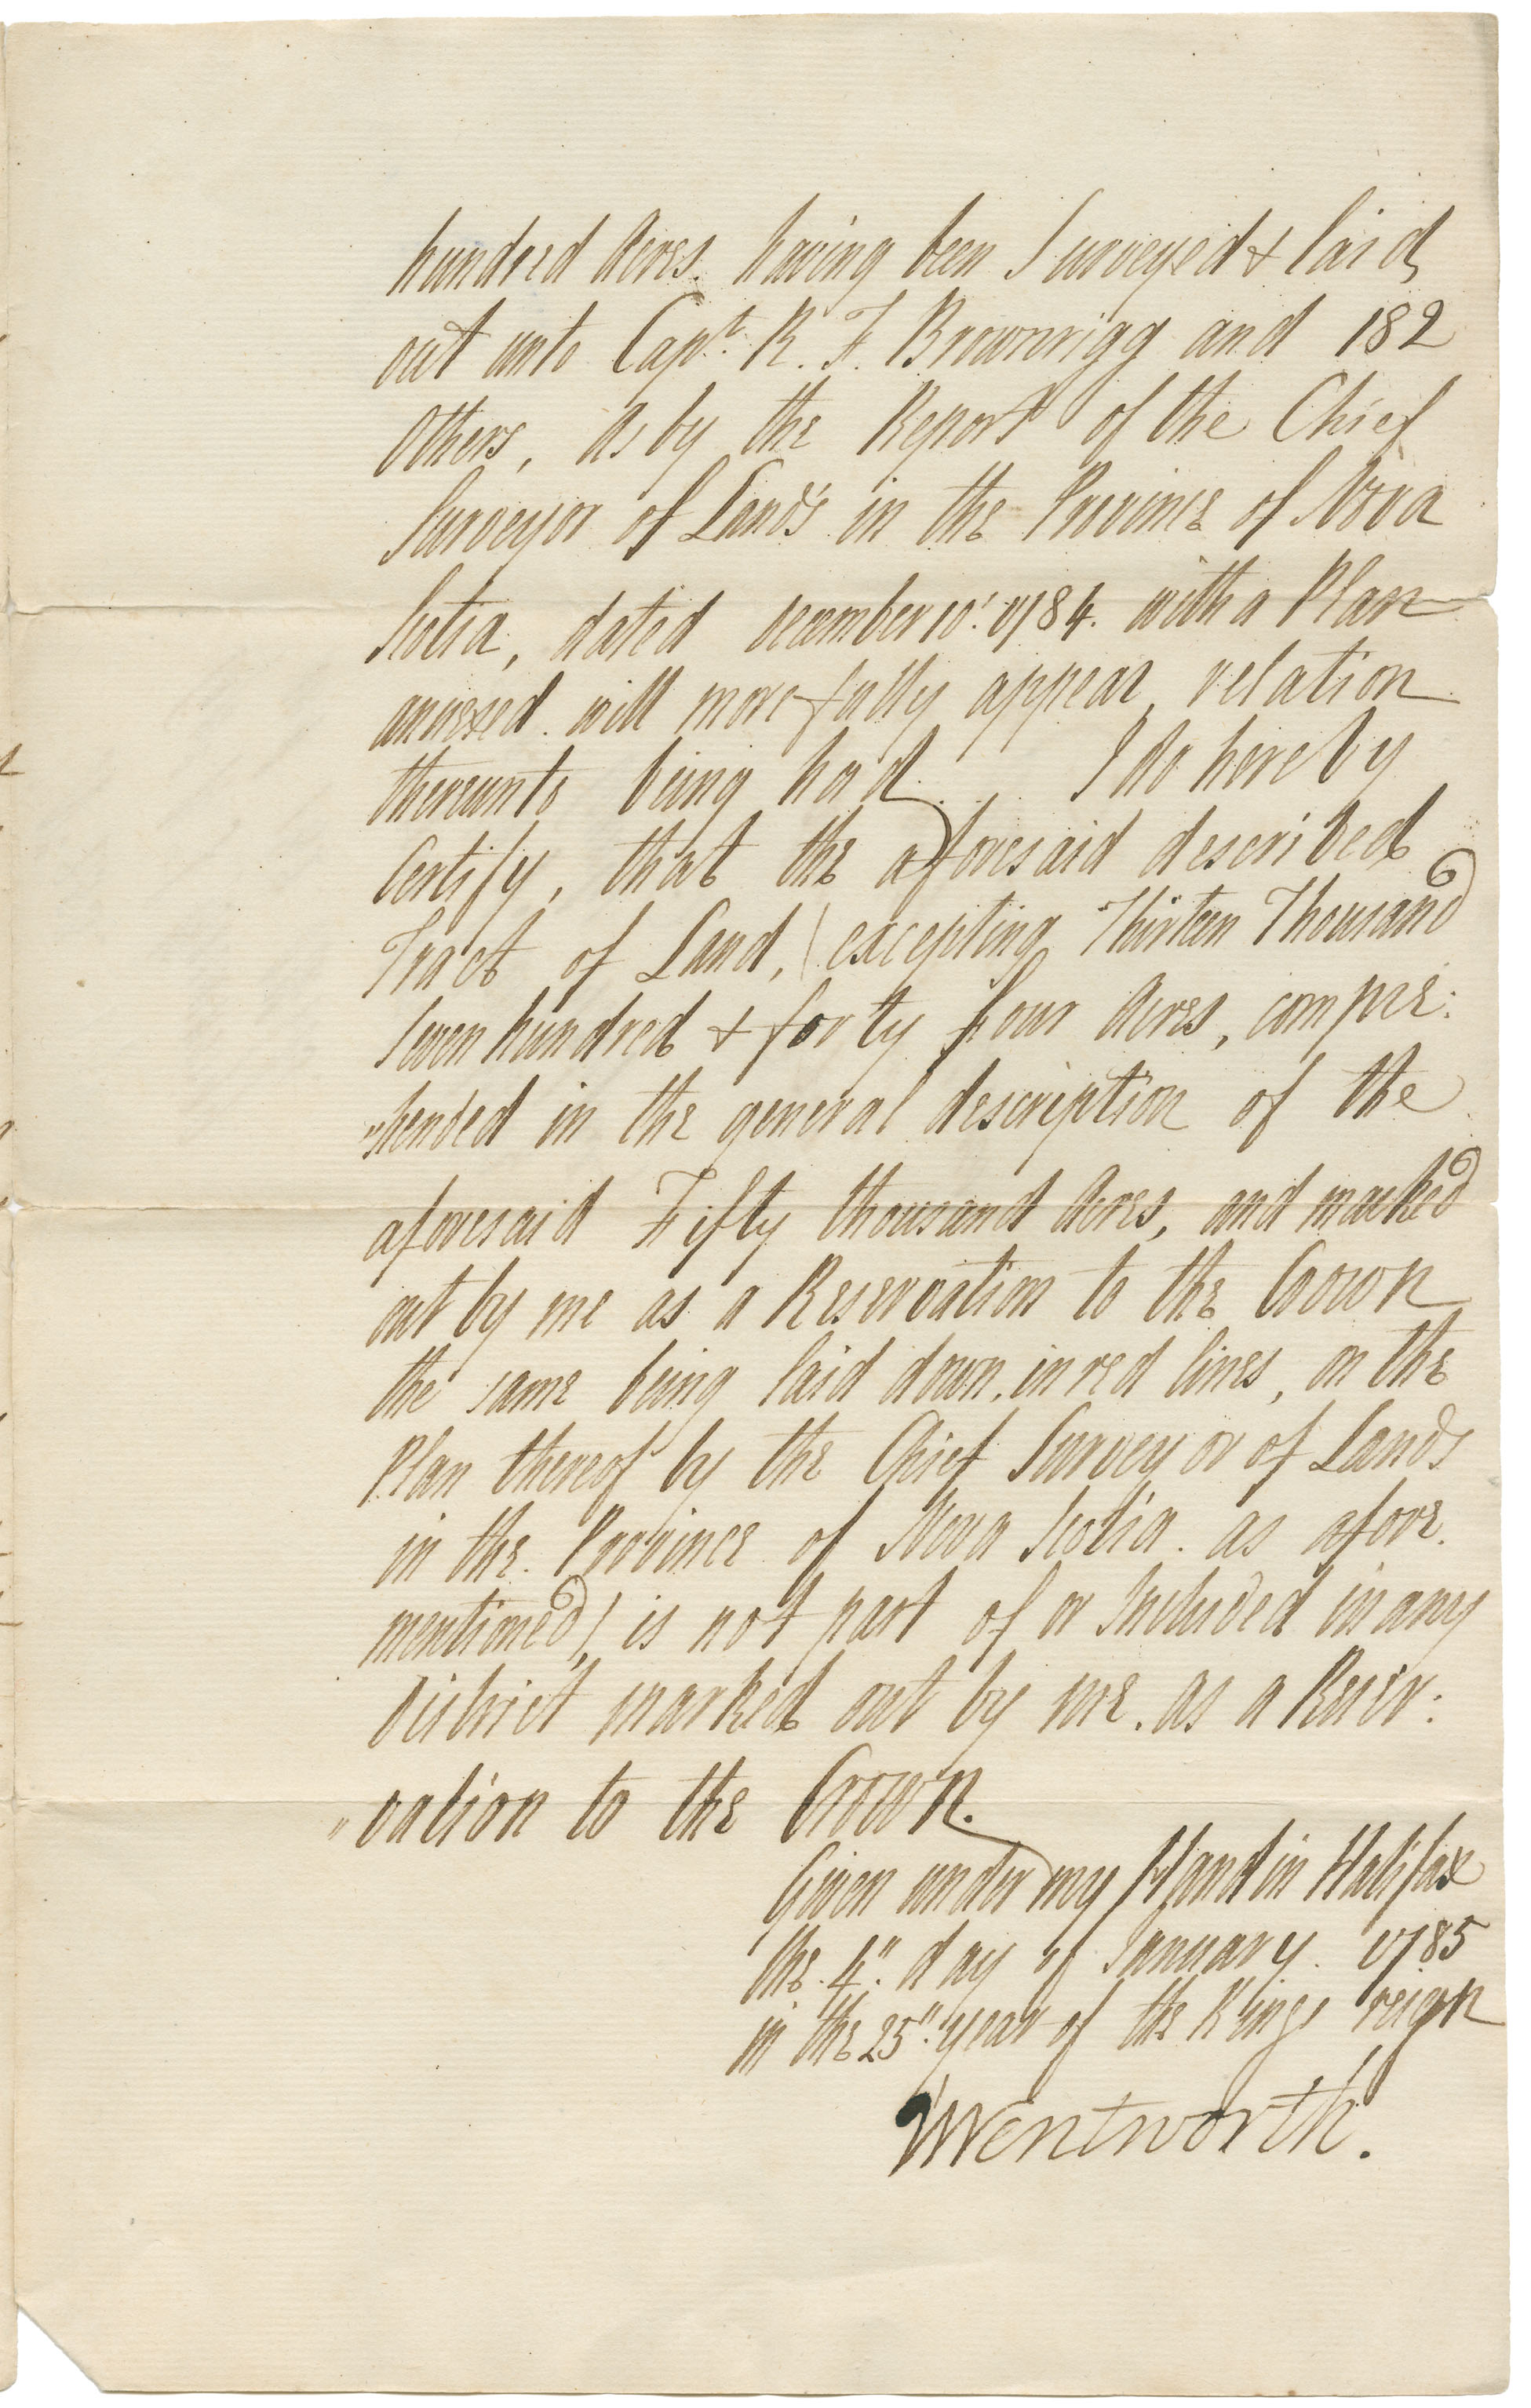 hundred Acres. having been Surveyed & laid
out unto Capt. R. F. Brownrigg and 182
Others, as by the Report of the Chief
Surveyor of Lands in the Province of Nova
Scotia, dated december 10: 1784. with a Plan
annexed will more fully appear, relation
thereunto being had. I do hereby
Certify, that the aforesaid described
Tract of Land, (excepting Thirteen Thousand
Seven hundred & forty four Acres, compre:
"hended in the general description of the
aforesaid Fifty thousand Acres, and marked
out by me as a Reservation to the Crown
the same being laid down, in red lines, on the
Plan thereof by the Chief Surveyor of Lands
in the Province of Nova Scotia. as afore.
mentioned,) is not part of or Included in any
district marked out by me. as a Reser:
"vation to the Crown.
Given under my Hand in Halifax
the 4" day of January. 1785
in the 25" year of the Kings reign
Wentworth.